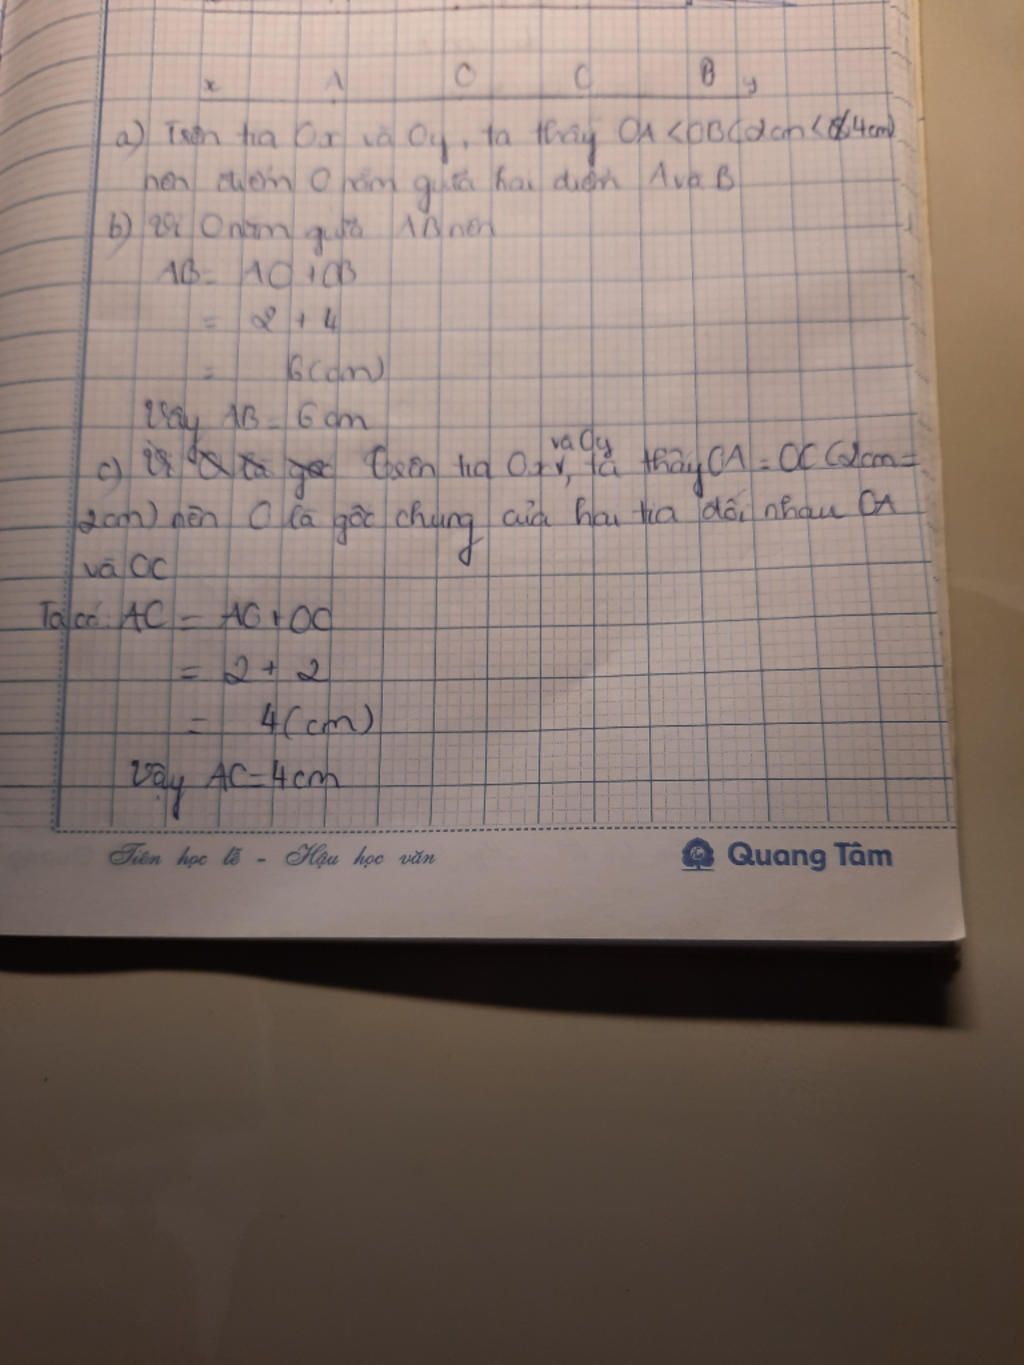 x A O C B y
a) Trên tia Ox và Oy, ta thấy OA < OB (2cm < 4cm)
nên điểm O nằm giữa hai điểm A và B
b) Vì O nằm giữa AB nên
AB = AO + OB
= 2 + 4
= 6 (cm)
Vậy AB = 6 cm
c) Vì Trên tia Ox và Oy, ta thấy OA = OC (2cm =
2cm) nên O là gốc chung của hai tia đối nhau OA
và OC
Ta có: AC = AO + OC
= 2 + 2
= 4 (cm)
Vậy AC = 4 cm
Tiên học lễ - Hậu học văn Quang Tâm